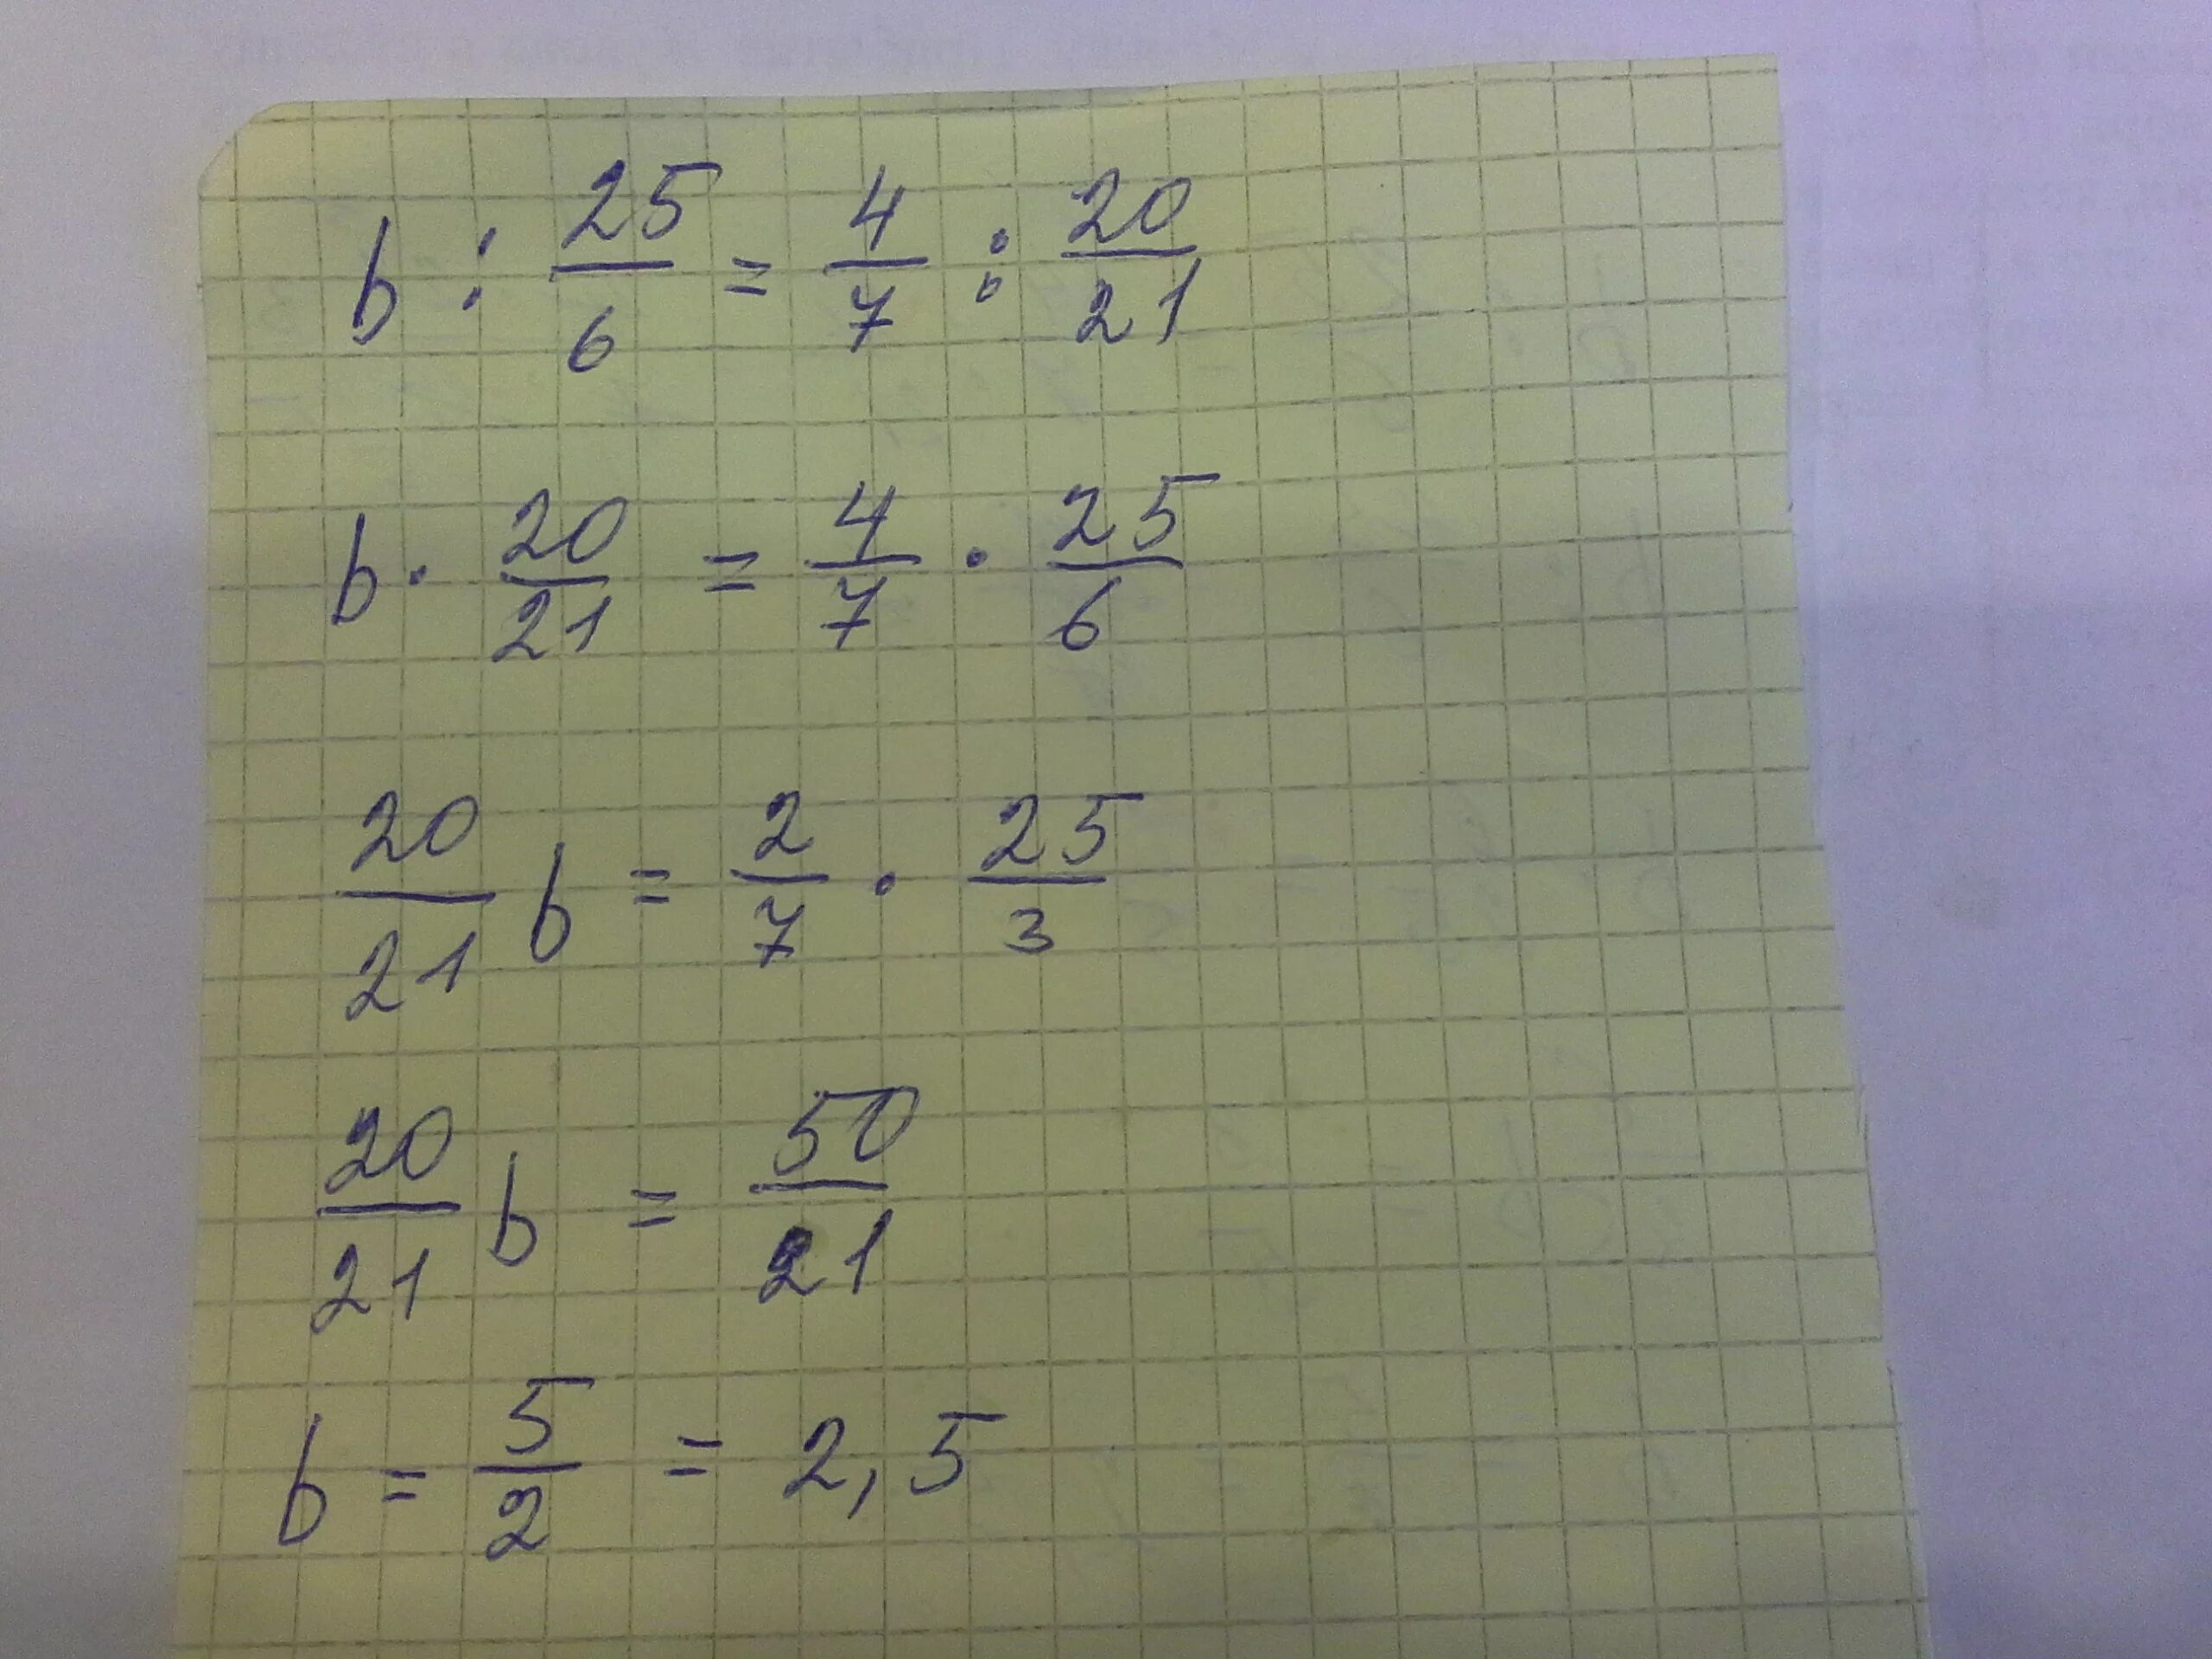 b : 25/6 = 4/7 : 20/21
b · 20/21 = 4/7 · 25/6
20/21 b = 2/7 · 25/3
20/21 b = 50/21
b = 5/2 = 2,5